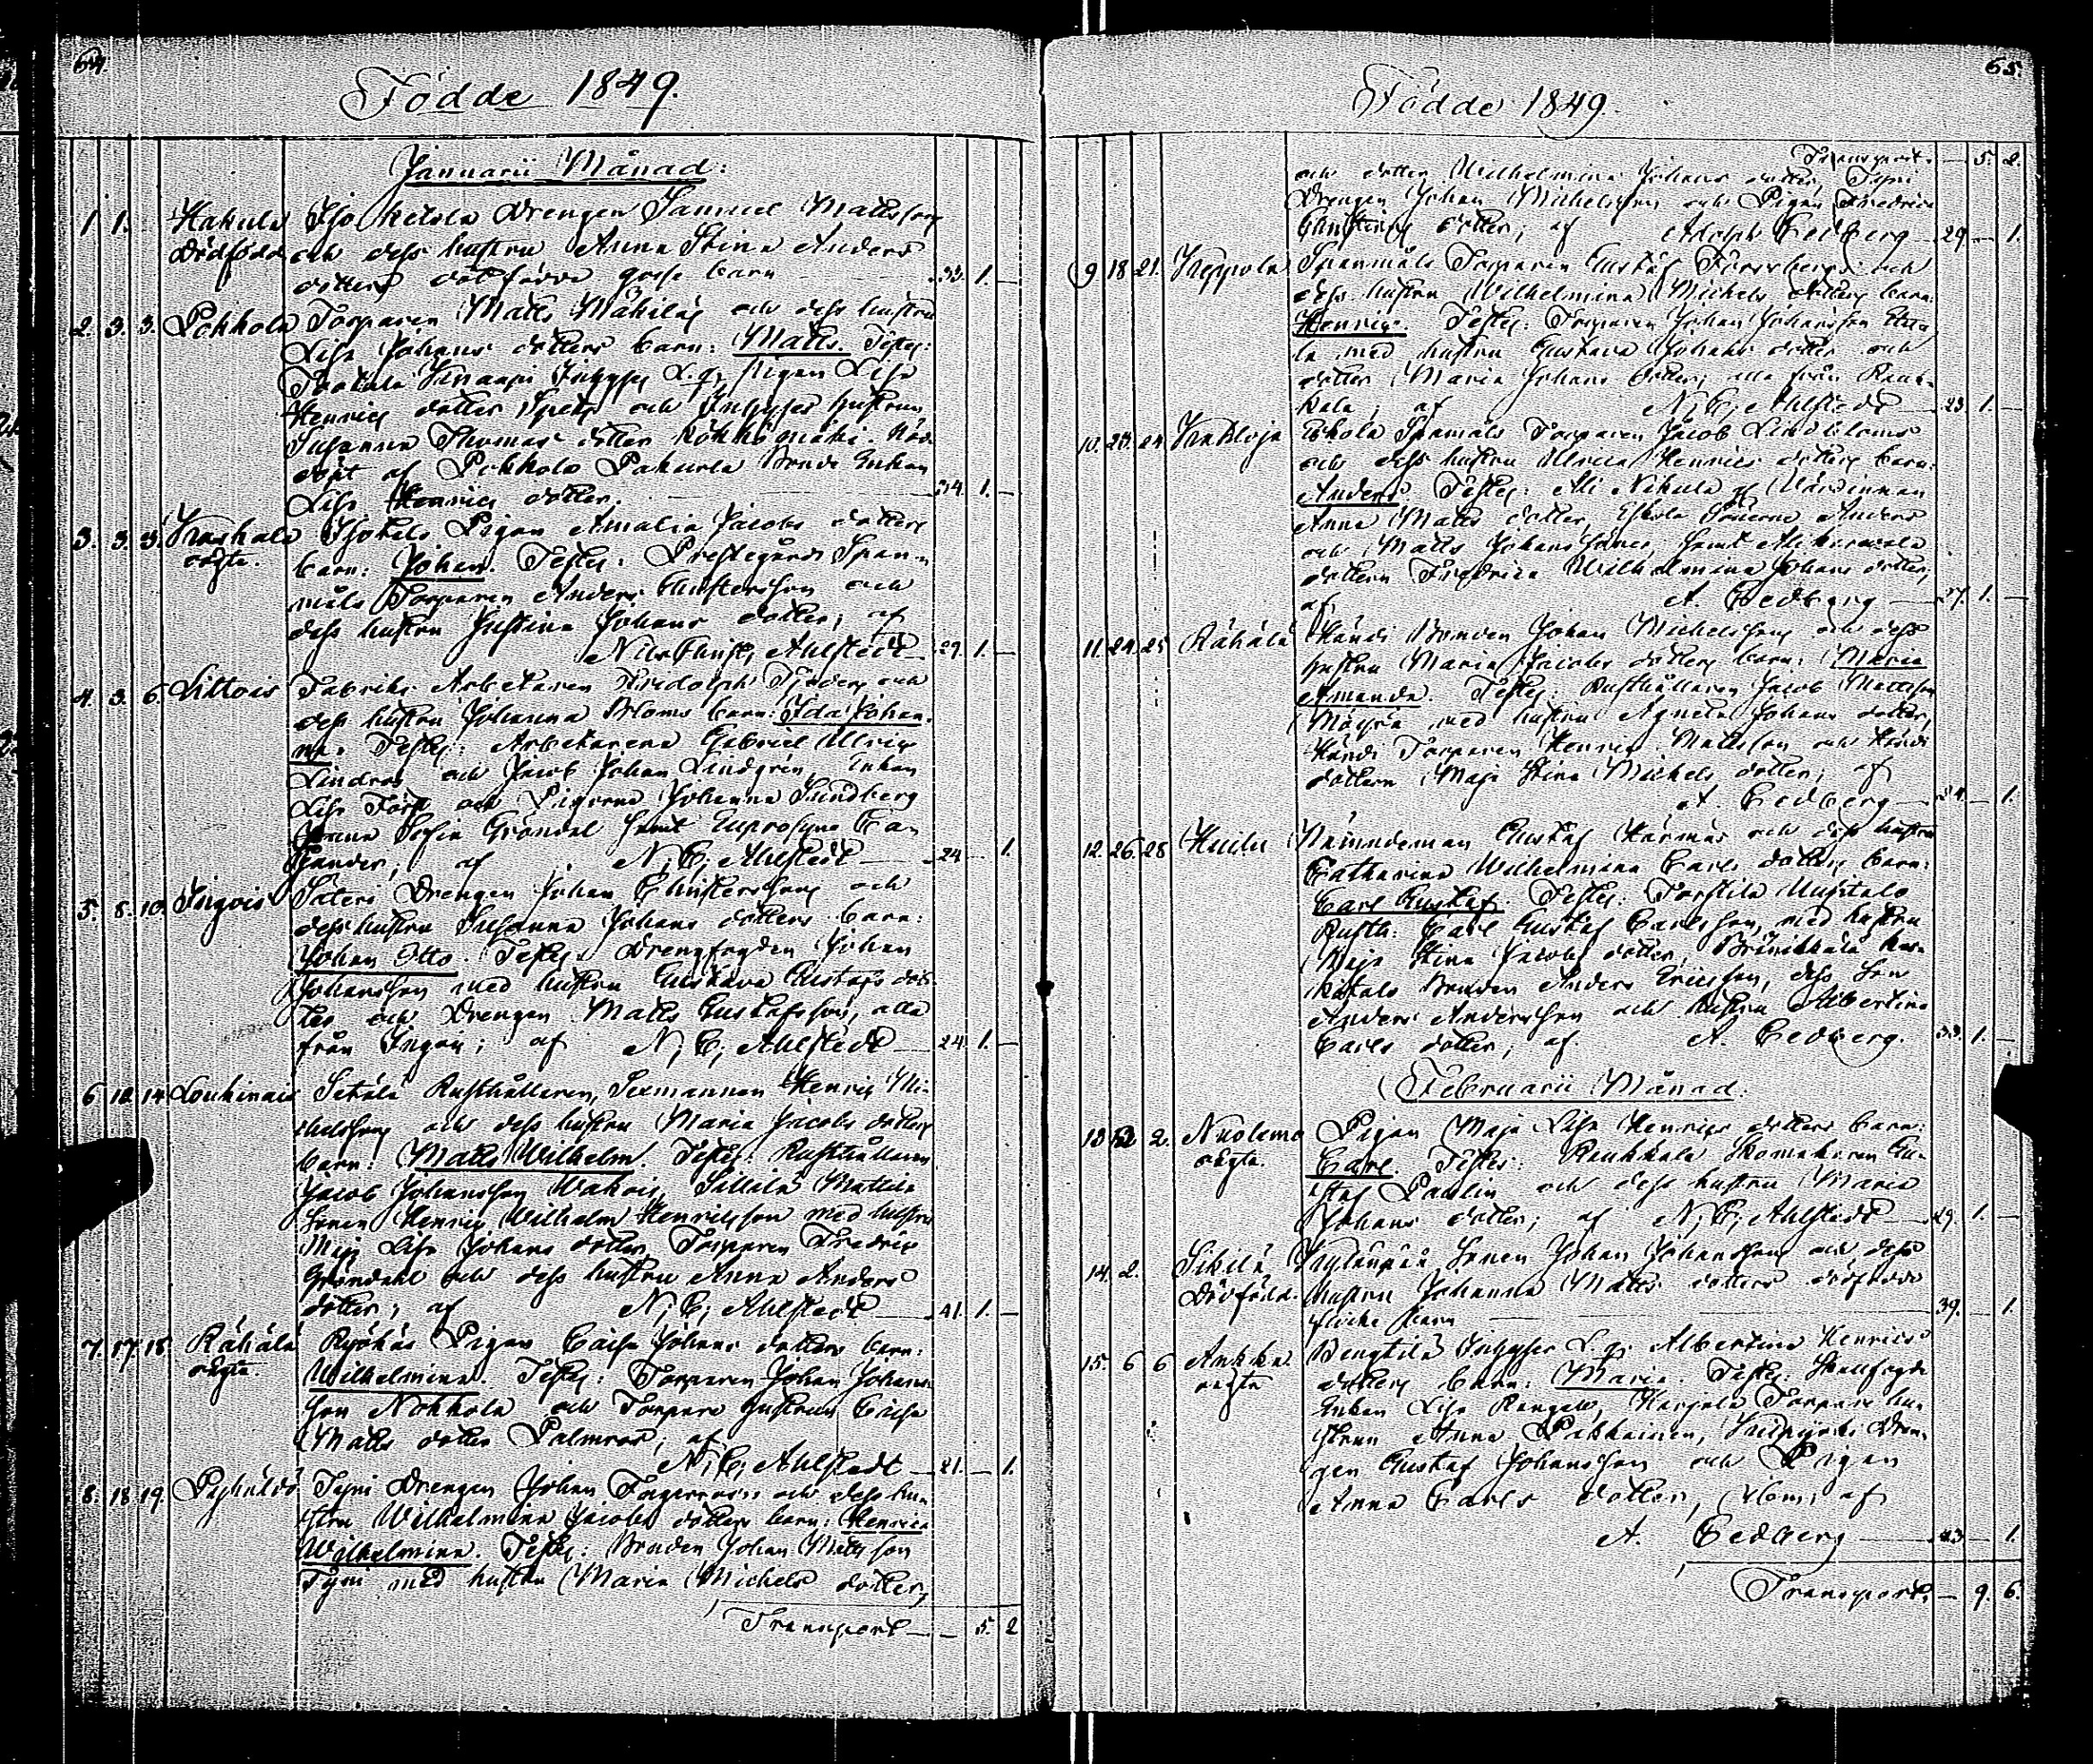 64.
Födde 1849.
Januarii Månad:
1. 1. Hakula Isoheikola Drengen Samuel Mattssons
Dödfödd och dess hustru Anna Stina Anders
dotters dödfödde gosse barn 33. 1. —
2. 3. 3. Pokkola Torparen Matts Mäkiläs och dess hustru
Lisa Johans dotters barn: Matts. Testes:
Inhyses L. g. Pigan Lisa
Henrics dotter och Inhyses hustrun
Susanna Thomas dotter Kökkömäki. Nöd-
döpt af Pokkola Pakurla Bonde Enkan
Lisa Henrics dotter. 34. 1. —
3. 3. 3. Pigan Amalia Jacobs dotters
oägta. barn: Johan. Testes: Prestegårds Span-
måls Torparen Anders Christersson och
dess hustru Justina Johans dotter; af
Nils Christ; Ahlstedt 29. 1. —
4. 3. 6. Littois Fabriks Arbetaren och
dess hustru Johanna Bloms barn: Ida Johan-
na. Testes: Arbetarena Gabriel Ulric
Lindros och Jacob Johan Lindgrén, Enkan
Lisa och Pigorna Johanna Sundberg
Anna Sofia Gröndal samt Euprosyne Ca-
; af N; C; Ahlstedt 24. — 1.
5. 8. 10. Ingois Säteri Drengen Johan Christerssons och
dess hustru Susanna Johans dotters barn:
Johan Otto. Testes: Drengfogden Johan
Johansson med hustru Gustava Gustafs dot-
ter och Drengen Matts Gustafsson, alla
från Ingois; af N; C; Ahlstedt 24. 1. —
6. 12. 14. Loukinais Setälä Rusthållaren, Sexmannen Henric Mi-
chelssons och dess hustru Maria Jacobs dotters
barn: Matts Wilhelm. Testes: Rusthållaren
Jacob Johansson Wakois, Sillilä Mattila
Sonen Henric Wilhelm Henricsson med hustru
Maja Lisa Johans dotter, Torparen Fredric
Gröndahl och dess hustru Anna Anders
dotter; af N; C; Ahlstedt 41. 1. —
7. 17. 18. Rähälä Pigan Caisa Johans dotters barn:
oägta. Wilhelmina. Testes: Torparen Johan Johans-
son Nokkola och Torpare hustrun Caisa
Matts dotter Palmroos; af
N; C; Ahlstedt 21. — 1.
8. 18. 19. Pyhältö Tyni Drengen Johan Fagerroos och dess hu-
stru Wilhelmina Jacobs dotters barn: Henrica
Wilhelmina. Testes: Bonden Johan Mattsson
Tyni med hustru Maria Michels dotter,
Transport — — 5. 2
65.
Födde 1849.
Transport. — 5. 2.
och dotter Wilhelmina Johans dotter, Tyni
Drengen Johan Michelsson och Pigan Fredrica
Christers dotter; af Adolph Cedberg 29. — 1.
9 18 21. Kreppola Spanmåls Torparen Gustaf Forssbergs och
dess hustru Wilhelmina Michels dotters barn:
Henric. Testes: Torparen Johan Johansson
med hustru Gustava Johans dotter och
dotter Maria Johans dotter, alla från Rauk-
kala; af N; C; Ahlstedt 23. 1. —
10. 20. 24. Eskola Spanmåls Torparen Jacob Lindbloms
och dess hustru Ulrica Henrics dotters barn:
Anders. Testes: Ali Nikula Wärdinnan
Anna Matts dotter, Eskola Sönerne Anders
och Matts Johans söner, samt
dottern Fredrica Wilhelmina Johans dotter;
af A. Cedberg 27. 1. —
11. 24. 25 Rähälä Händi Bonden Johan Michelssons och dess
hustru Maria Jacobs dotters barn: Maria
Amanda. Testes: Rusthållaren Jacob Mattsson
Mäyrä med hustru Agneta Johans dotter,
Händi Torparen Henric Mattsson och Händi
dottern Maja Stina Michels dotter; af
A. Cedberg 34. — 1.
12. 26. 28 Huilu Nämndeman Gustaf Härmäs och dess hustru
Catharina Wilhelmina Carls dotters barn:
Carl Gustaf. Testes: Torstila Uusitalo
Rusth: Carl Gustaf Carlsson, med hustru
Maja Stina Jacobs dotter,
Bonden Anders Ericsson, dess Son
Anders Andersson och hustru Albertina
Carls dotter; af A. Cedberg. 33. 1. —
Februarii Månad.
13 2 2. Nuolemo Pigan Maja Lisa Henrics dotters barn:
oägta. Carl. Testes: Raukkala Skomakaren Gu-
staf Paulin och dess hustru Maria
Johans dotter; af N; C; Ahlstedt 29. 1. —
14. 2. Sikilä Sonen Johan Johanssons och dess
Dödfödd. hustru Johanna Matts dotters dödfödda
flicke barn 39. — 1.
15 6 6 Aukka Bengtilä Inhyses L. q. Albertina Henrics
oägta dotters barn: Maria. Testes: Stallfogde
Enkan Lisa Rangell, Harjola Torpare hu-
strun Anna Pakkainen, Dren-
gen Gustaf Johansson och Pigan
Anna Carls dotter, af
A. Cedberg 23 — 1.
Transport, — 9. 6.